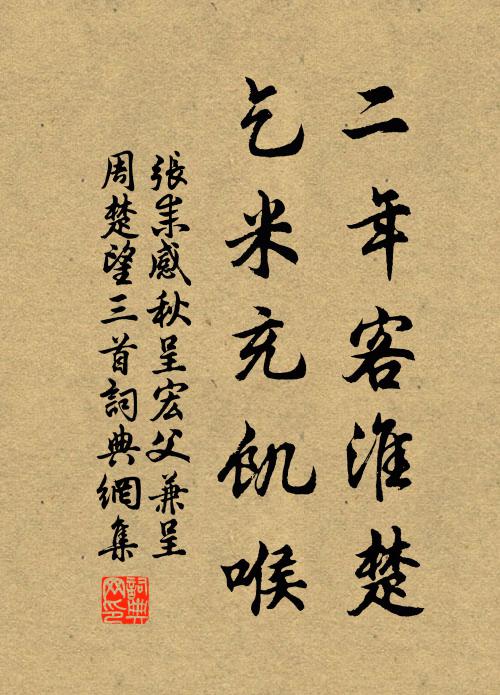 二年客淮楚
乞米充飢喉
張耒感秋呈宏父兼呈
周楚望三首詞典網集
詞典
网印